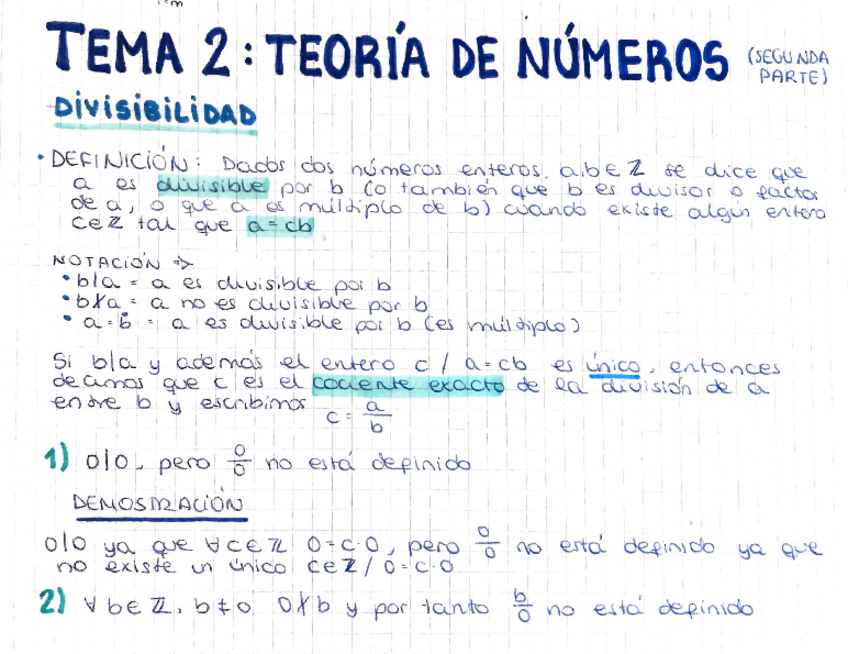 TEMA 2: TEORÍA DE NÚMEROS (SEGUNDA PARTE)
DIVISIBILIDAD
• DEFINICIÓN: Dados dos números enteros, a,b ∈ ℤ se dice que
a es divisible por b (o también que b es divisor o factor
de a, o que a es múltiplo de b) cuando existe algún entero
c∈ℤ tal que a = cb
NOTACIÓN ⇒
• b|a = a es divisible por b
• b∤a = a no es divisible por b
• a = ḃ = a es divisible por b (es múltiplo)
Si b|a y además el entero c / a = cb es único, entonces
decimos que c es el cociente exacto de la división de a
entre b y escribimos c = a/b
1) 0|0, pero 0/0 no está definido
DEMOSTRACIÓN
0|0 ya que ∀c∈ℤ 0 = c·0, pero 0/0 no está definido ya que
no existe un único c∈ℤ / 0 = c·0
2) ∀b∈ℤ, b≠0 0∤b y por tanto b/0 no está definido